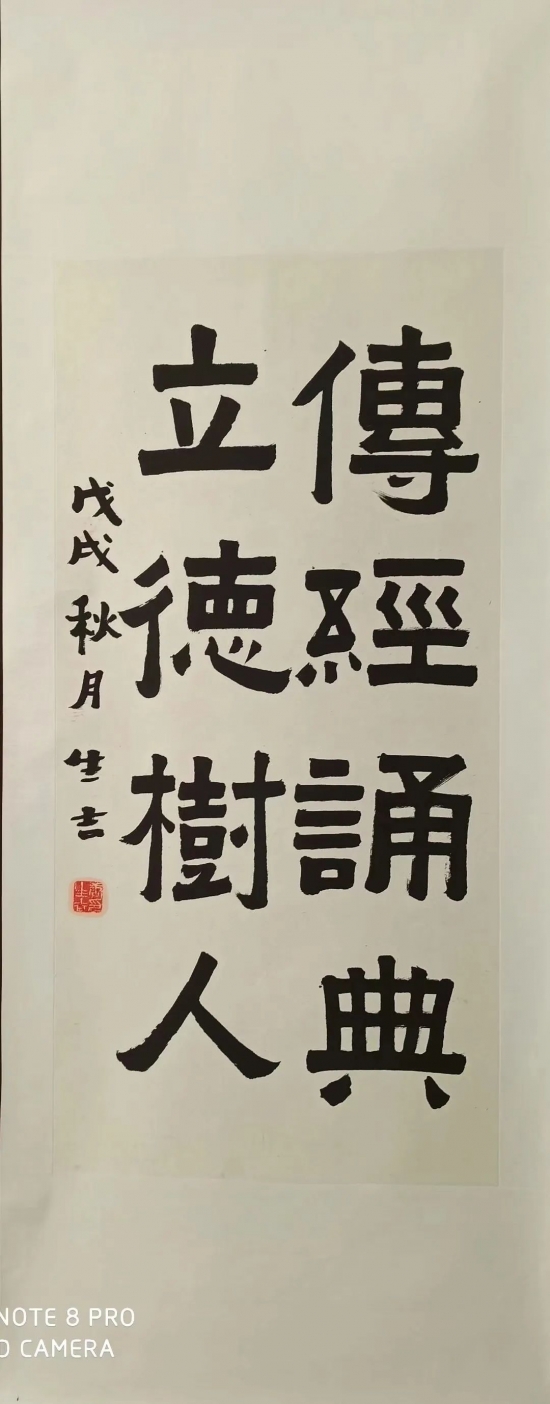 傳經誦典
立德樹人
戊戌秋月 生吉
NOTE 8 PRO
CAMERA